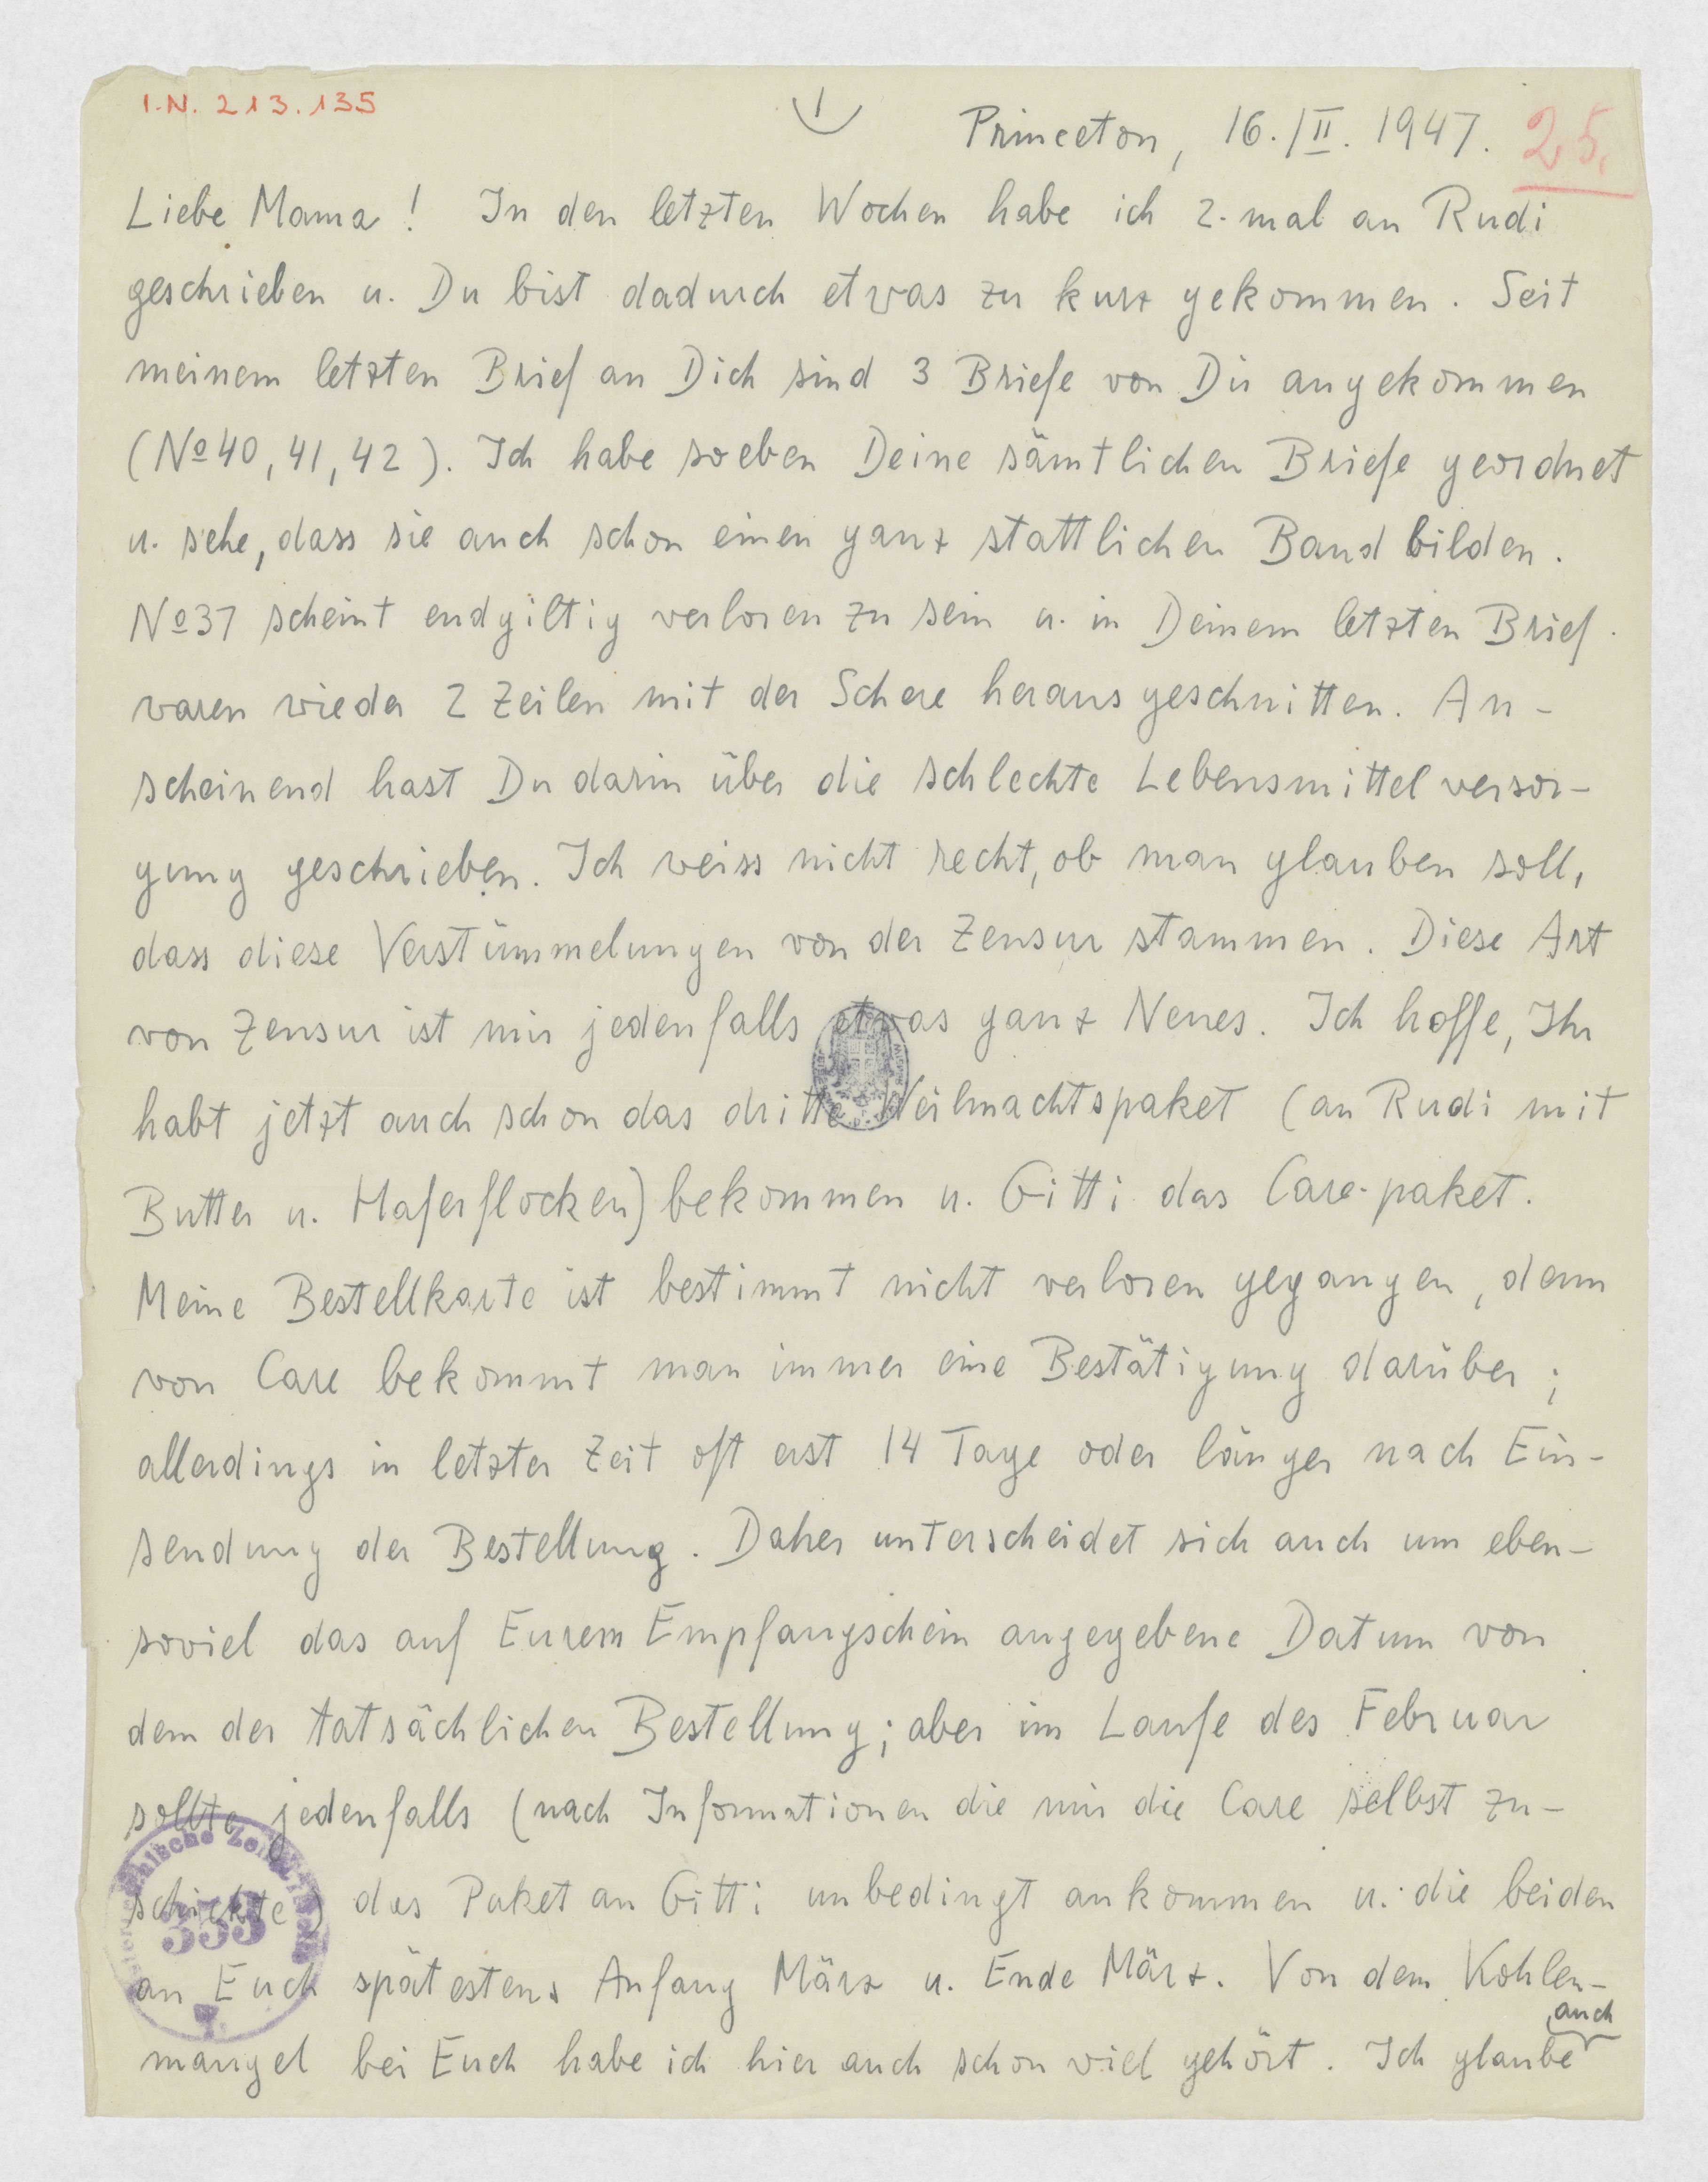 I.N. 213.135
1
Princeton, 16./II. 1947.
25.
Liebe Mama! In den letzten Wochen habe ich 2-mal an Rudi
geschrieben u. Du bist dadurch etwas zu kurz gekommen. Seit
meinem letzten Brief an Dich sind 3 Briefe von Dir angekommen
(№ 40, 41, 42). Ich habe soeben Deine sämtlichen Briefe geordnet
u. sehe, dass sie auch schon einen ganz stattlichen Band bilden.
№ 37 scheint endgiltig verloren zu sein u. in Deinem letzten Brief
waren wieder 2 Zeilen mit der Schere herausgeschnitten. An-
scheinend hast Du darin über die schlechte Lebensmittelversor-
gung geschrieben. Ich weiss nicht recht, ob man glauben soll,
dass diese Verstümmelungen von der Zensur stammen. Diese Art
von Zensur ist mir jedenfalls etwas ganz Neues. Ich hoffe, Ihr
habt jetzt auch schon das dritte Weihnachtspaket (an Rudi mit
Butter u. Haferflocken) bekommen u. Gitti das Care-paket.
Meine Bestellkarte ist bestimmt nicht verloren gegangen, denn
von Care bekommt man immer eine Bestätigung darüber;
allerdings in letzter Zeit oft erst 14 Tage oder länger nach Ein-
sendung der Bestellung. Daher unterscheidet sich auch um eben-
soviel das auf Eurem Empfangschein angegebene Datum von
dem der tatsächlichen Bestellung; aber im Laufe des Februar
sollte jedenfalls (nach Informationen die mir die Care selbst zu-
schickte) das Paket an Gitti unbedingt ankommen u. die beiden
an Euch spätestens Anfang März u. Ende März. Von dem Kohlen-
auch
mangel bei Euch habe ich hier auch schon viel gehört. Ich glaube
333